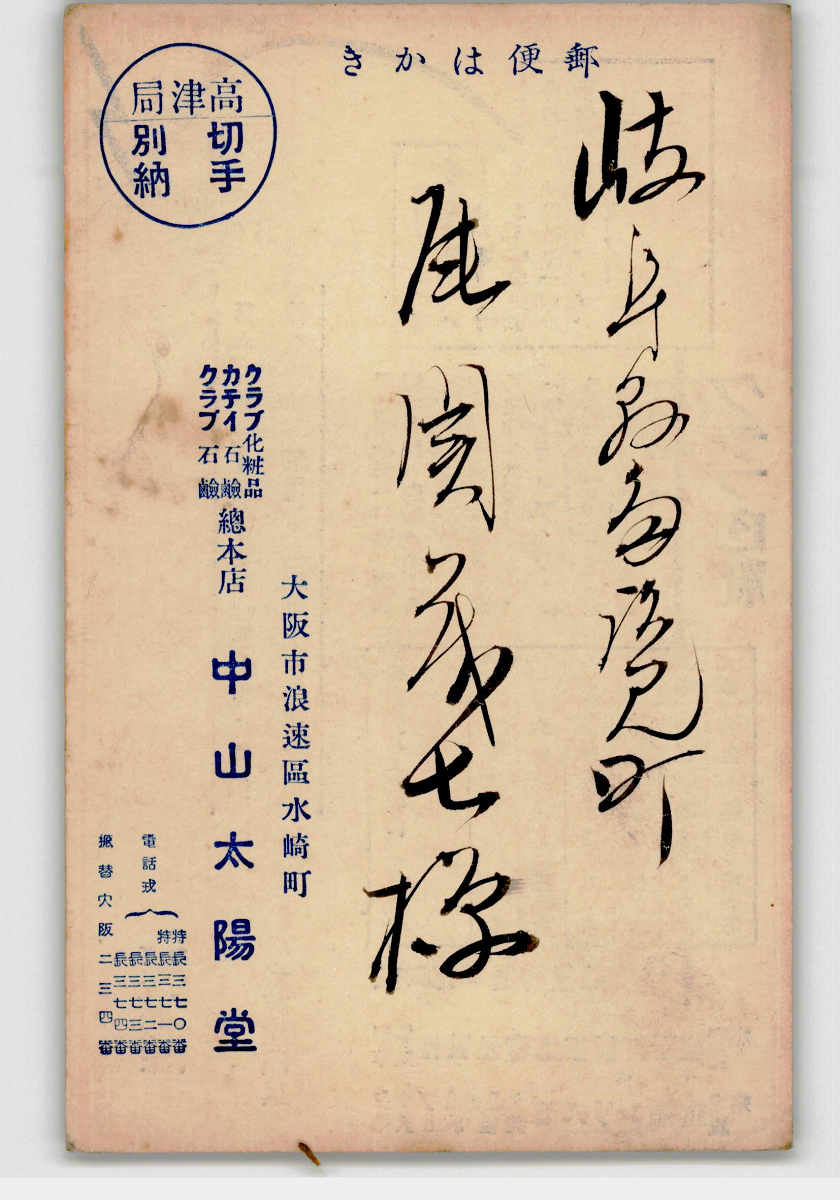 郵便はかき
高津局
切手
別納
岐阜縣多治見町
尾関茂七様
大阪市浪速區水崎町
クラブ化粧品
カテイ石鹸
クラブ石鹸
總本店 中山太陽堂
電話戎
特長三七〇番
特長三七一番
長三七二番
長三七三番
長三七四番
振替大阪二三四番